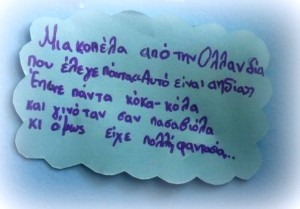 Μια κοπέλα από την Ολλανδία
που έλεγε πάντα «Αυτό είναι αηδία»
Έπινε πάντα κόκα-κόλα
και γινόταν σαν πασαβιόλα
κι όμως είχε πολλή φαντασία...